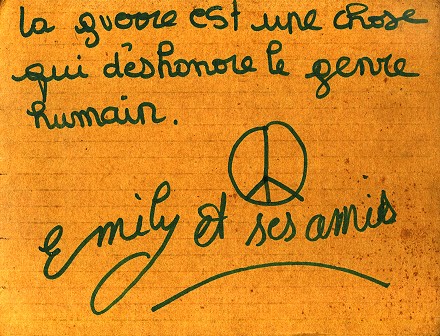 la guerre est une chose
qui déshonore le genre
humain.
Emily et ses amis